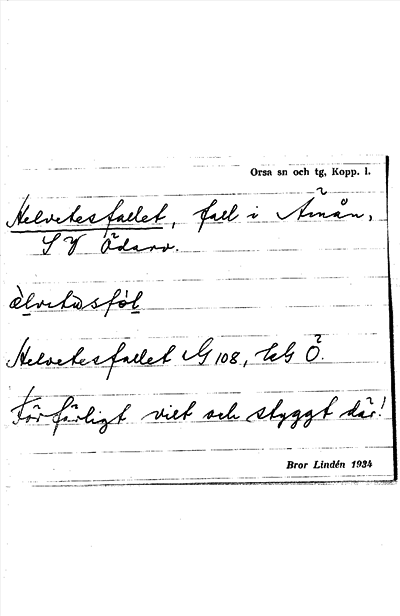 Orsa sn och tg, Kopp. l.
Helvetesfallet, fall i Ämån,
SV Ödarv.
Helvetesfallet G 108,
Förfärligt vilt och styggt där!
Bror Lindén 1934